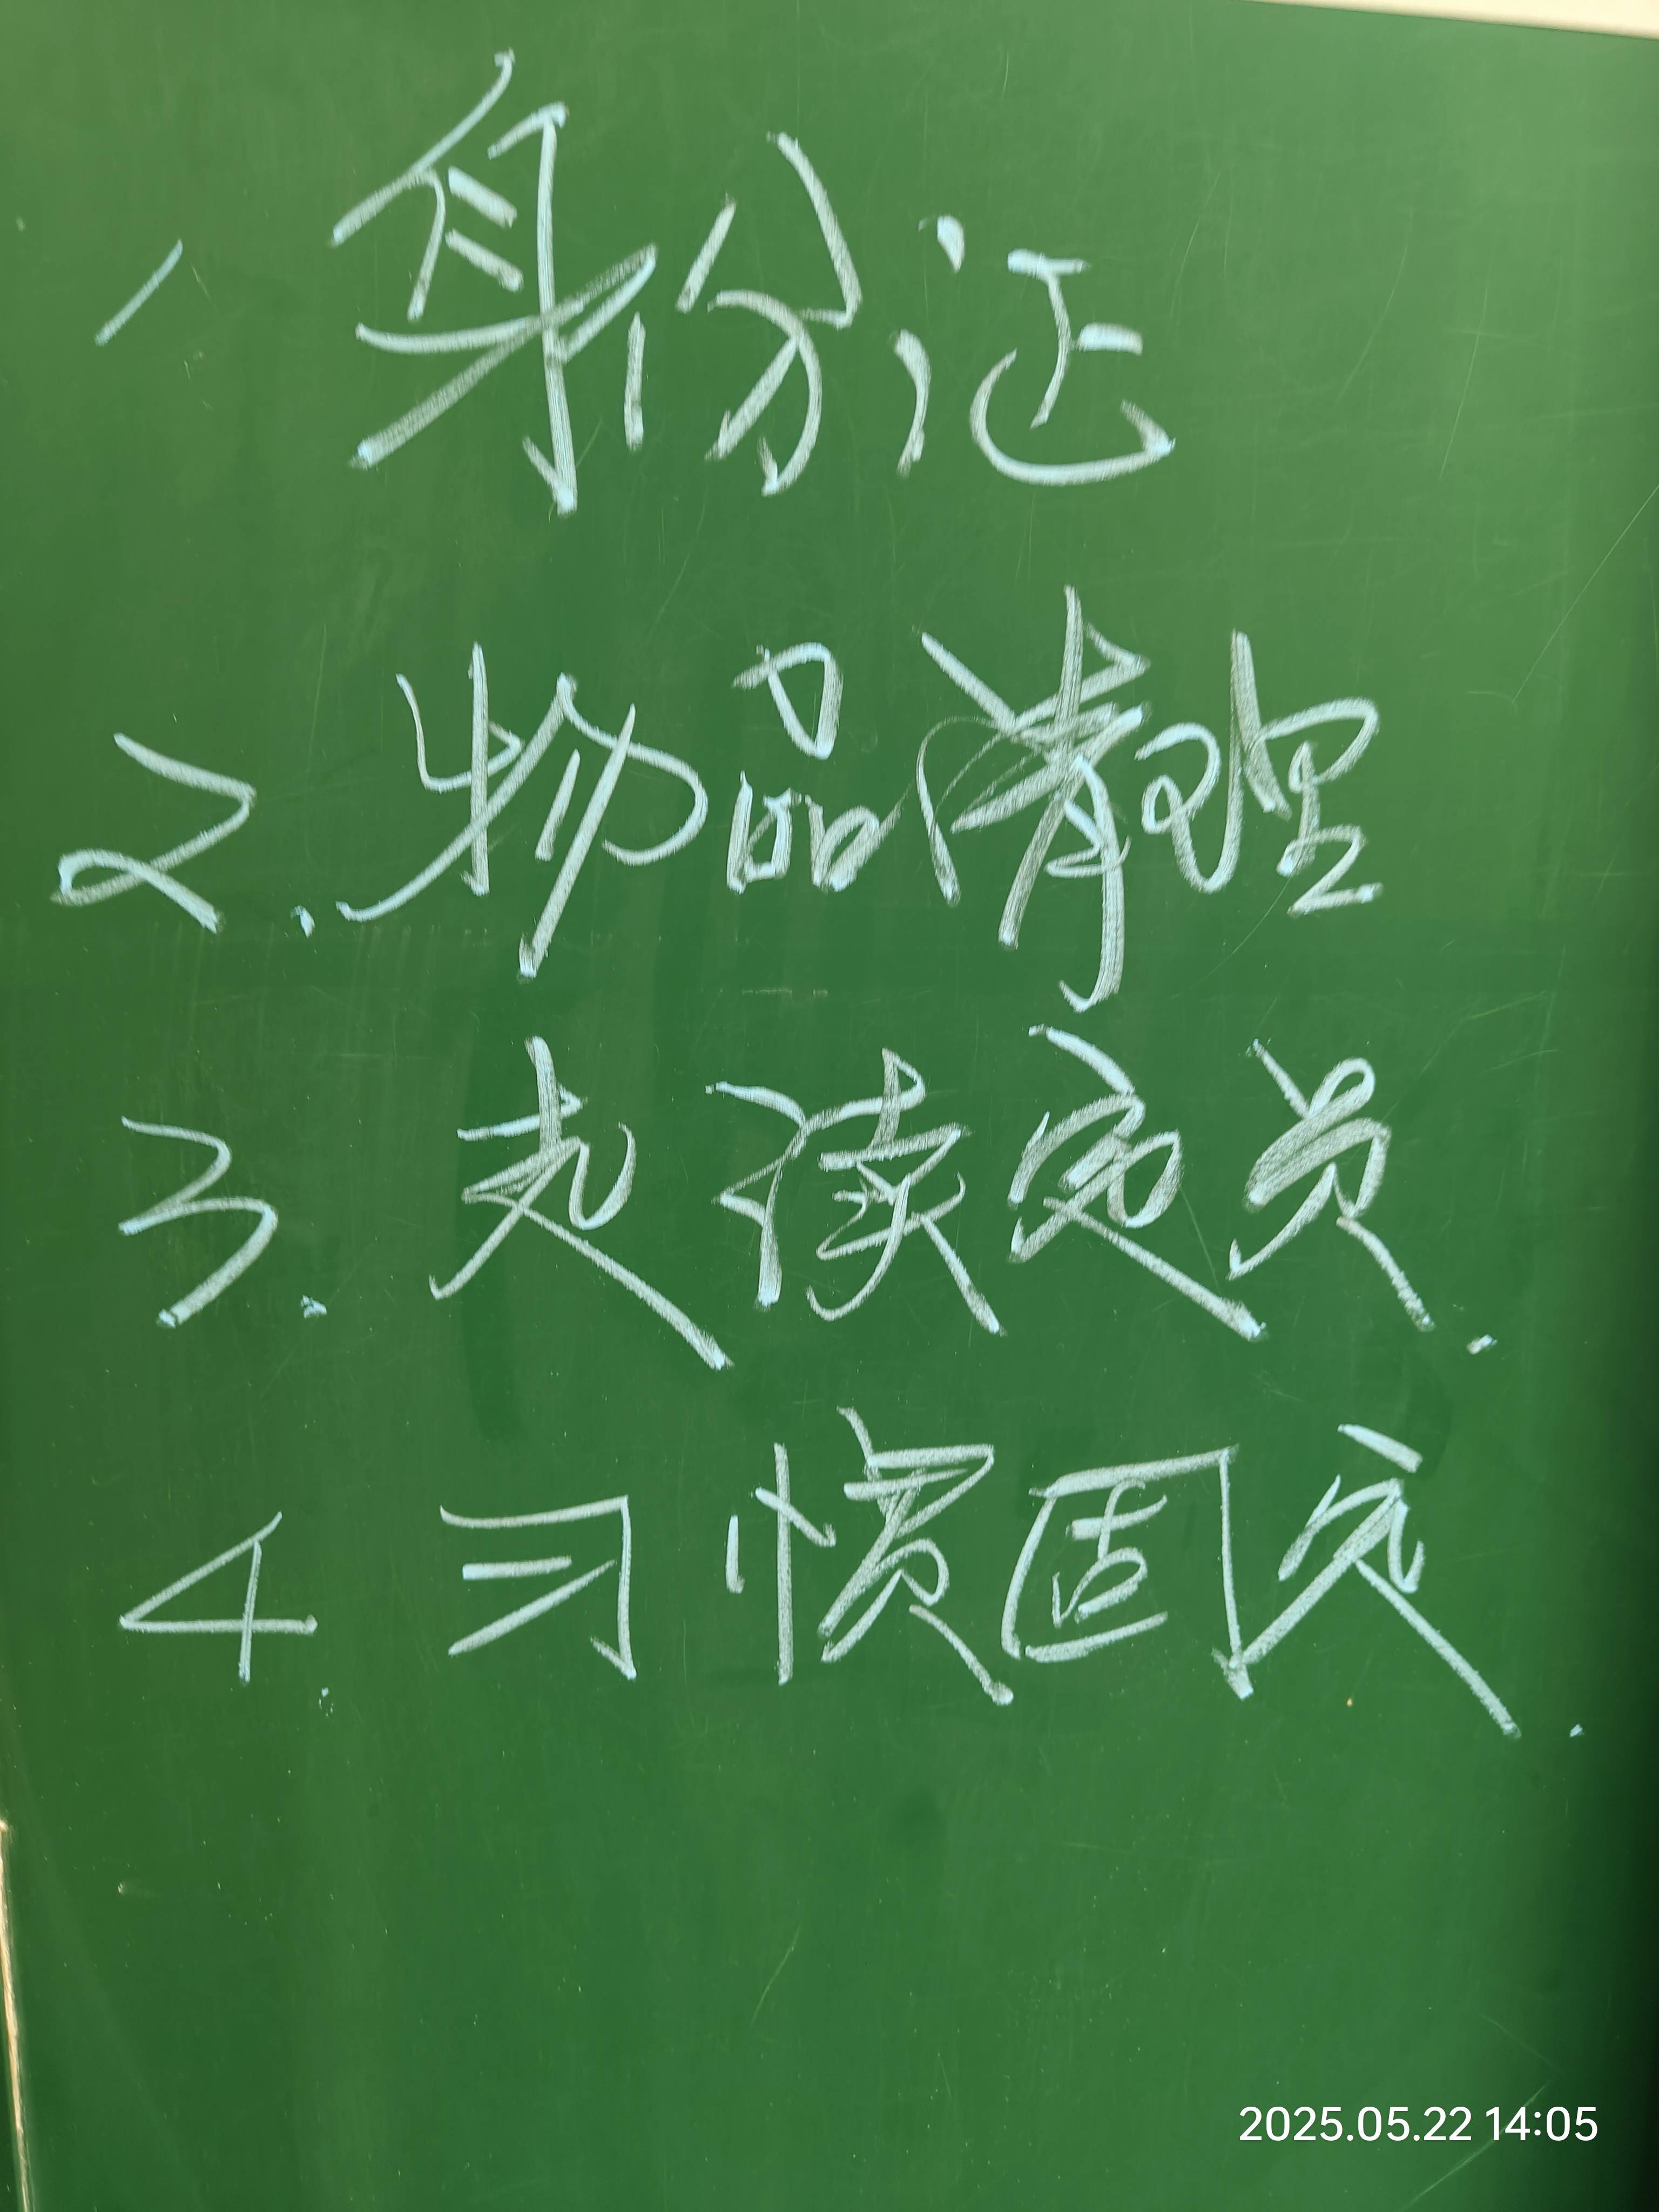 1. 身份证
2. 物品清理
3. 走读定员.
4. 习惯固定.
2025.05.22 14:05